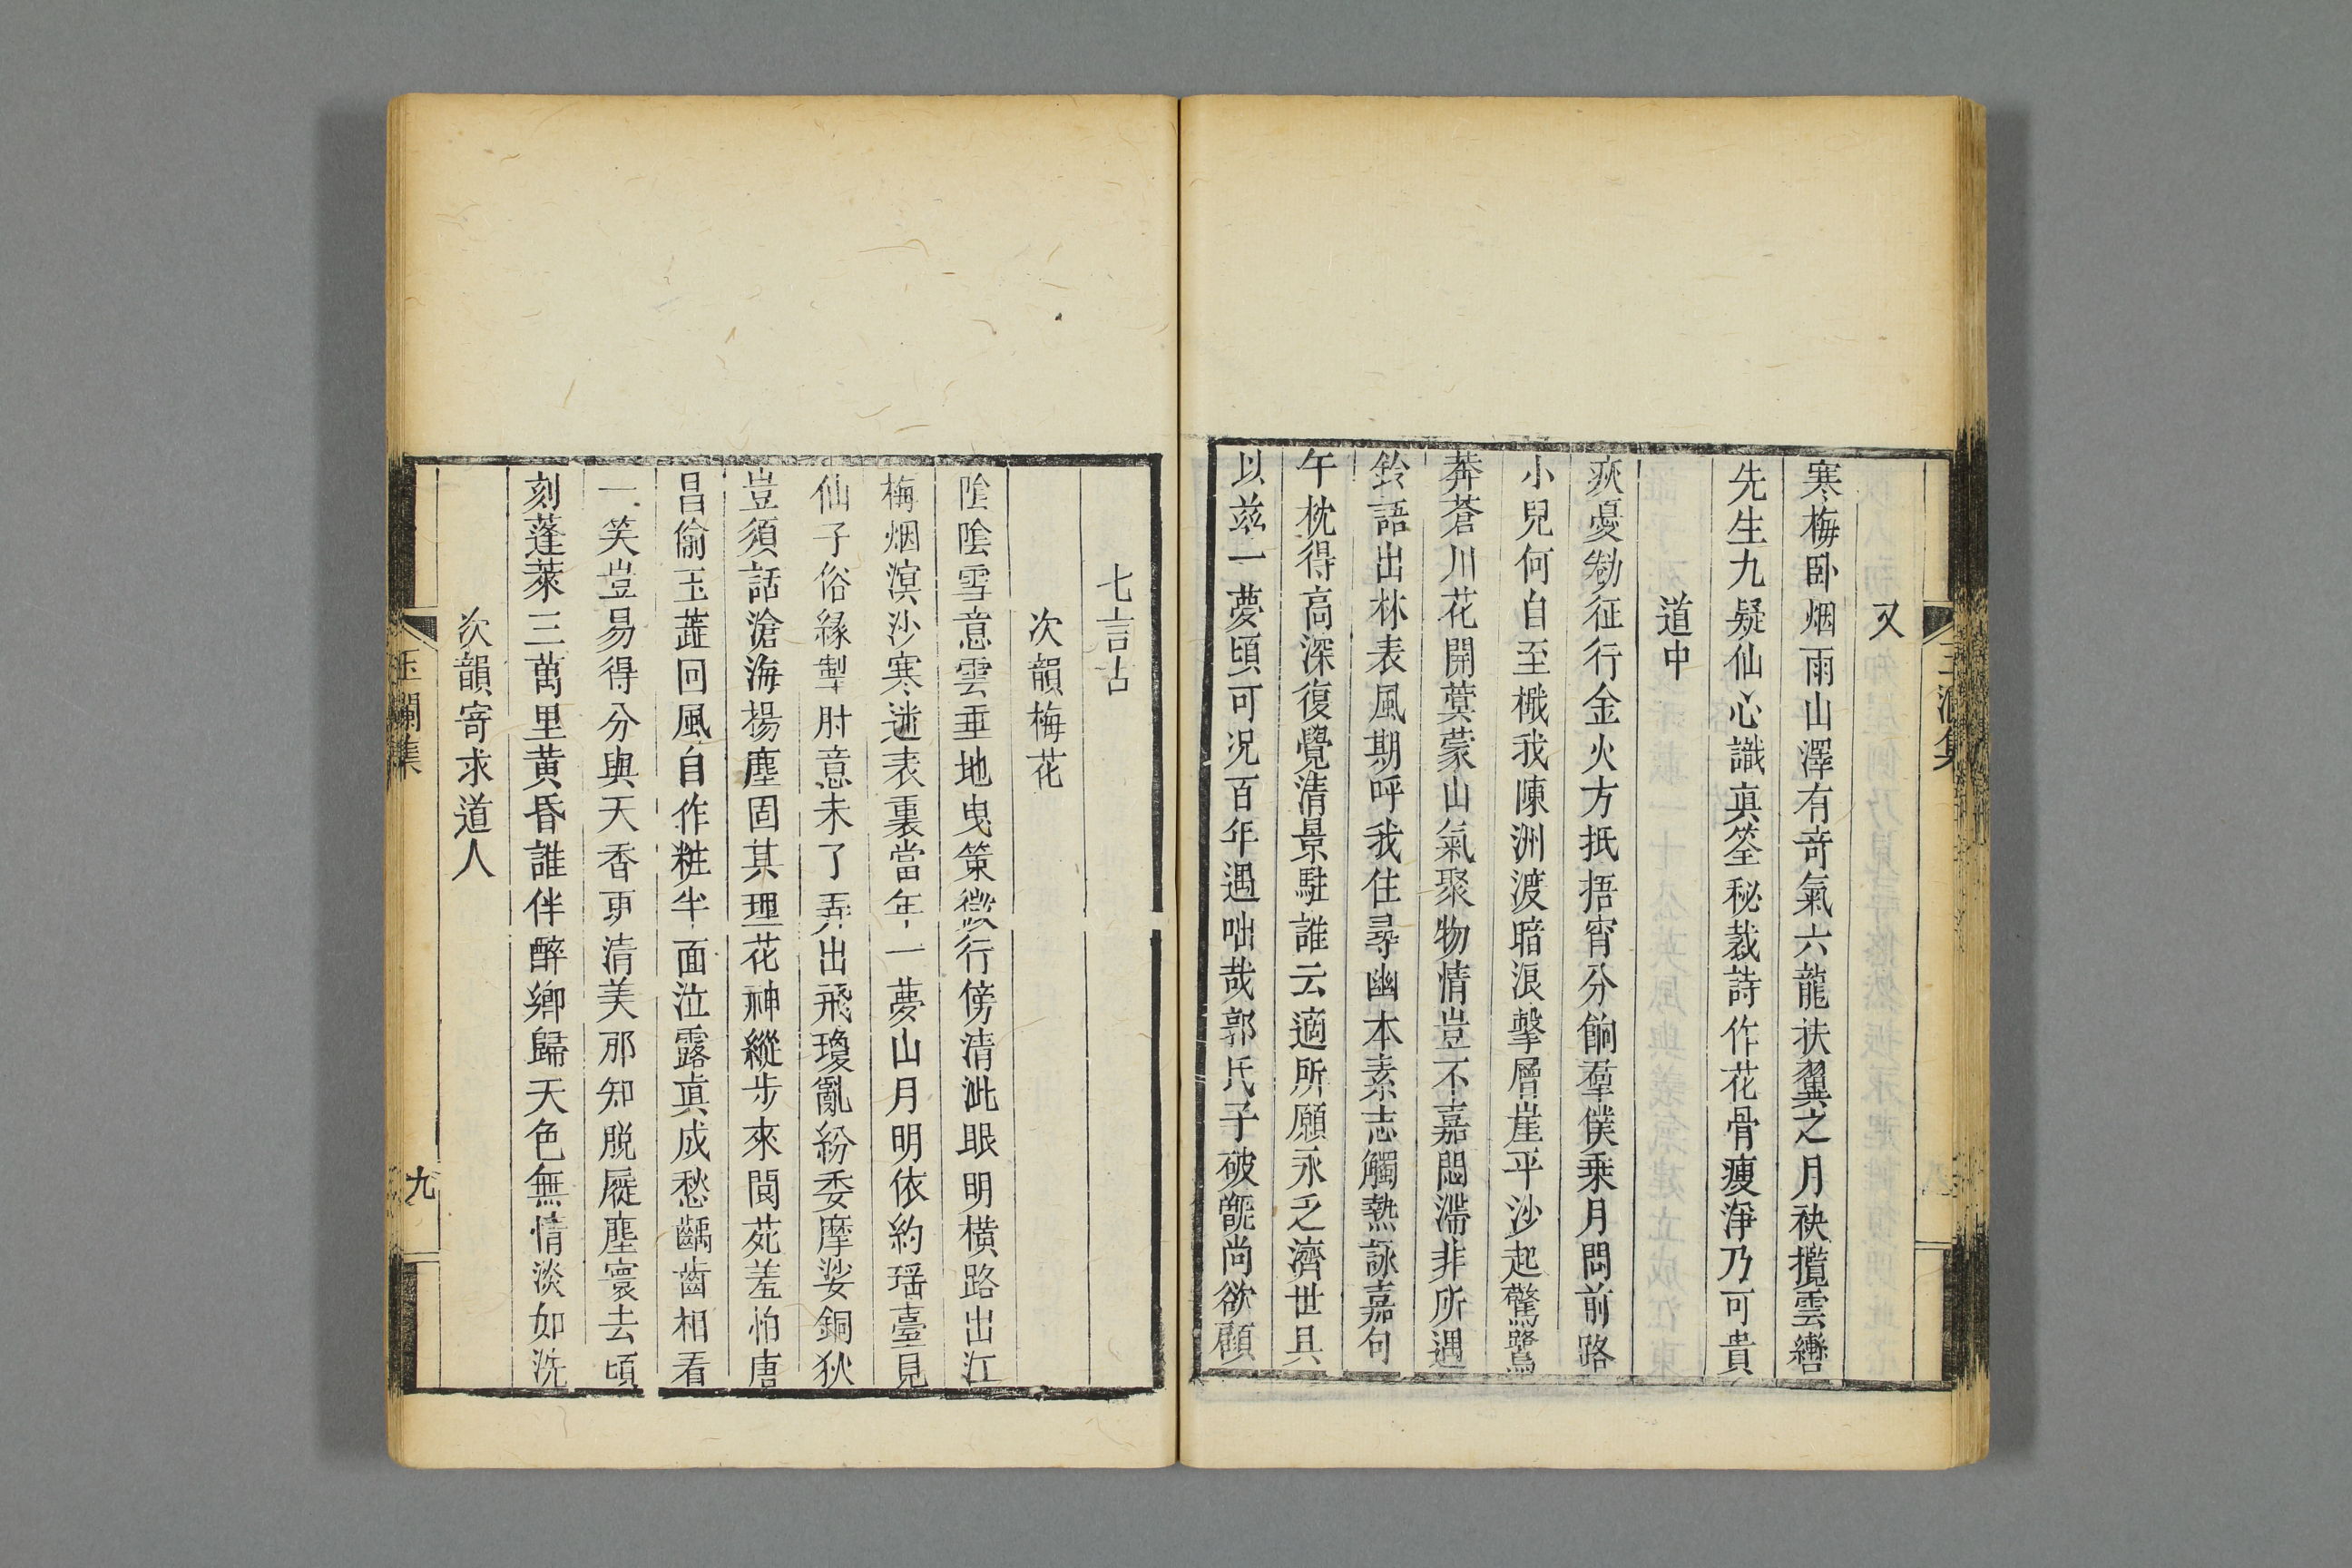 又
寒梅卧烟雨山澤有竒氣六龍扶翼之月袂攬雲轡
先生九疑仙心識真筌秘裁詩作花骨瘦淨乃可貴
道中
疾憂勉征行金火方抵捂宵分餉羣僕乗月問前路
小兒何自至檝我陳洲渡暗浪擊層崖平沙起驚鷺
莽蒼川花開蓂蒙山氣聚物情豈不嘉悶滯非所遇
鈴語出林表風期呼我住尋幽本素志觸熱詠嘉句
午枕得高深復覺清景駐誰云適所願永乏濟世具
以兹一夢頃可况百年遇咄哉郭氏子破甑尚欲顧
玉瀾集
七言古
次韻梅花
陰陰雪意雲垂地曳策微行傍清泚眼明橫路出江
梅烟溟沙寒迷表裏當年一夢山月明依約瑶臺見
仙子俗緣掣肘意未了弄出飛瓊亂紛委摩娑銅狄
豈須話滄海揚塵固其理花神縱步來閬苑羞怕唐
昌偷玉蘂回風自作粧半面泣露真成愁齲齒相看
一笑豈易得分與天香更清美那知脱屣塵寰去頃
刻蓬萊三萬里黄昏誰伴醉鄉歸天色無情淡如洗
次韻寄求道人
玉瀾集
九